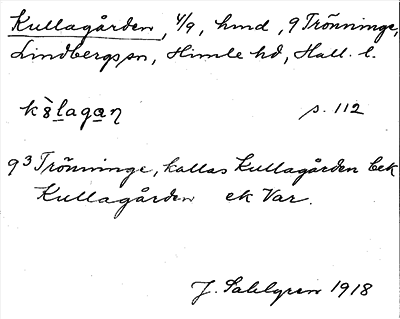 Kullagården, 4/9, hmd, 9 Trönninge,
Lindbergs sn, Himle hd, Hall. l.
kòlagaꞃ s. 112
9³ Trönninge, kallas Kullagården bek
Kullagården ek Var.
J. Sahlgren 1918